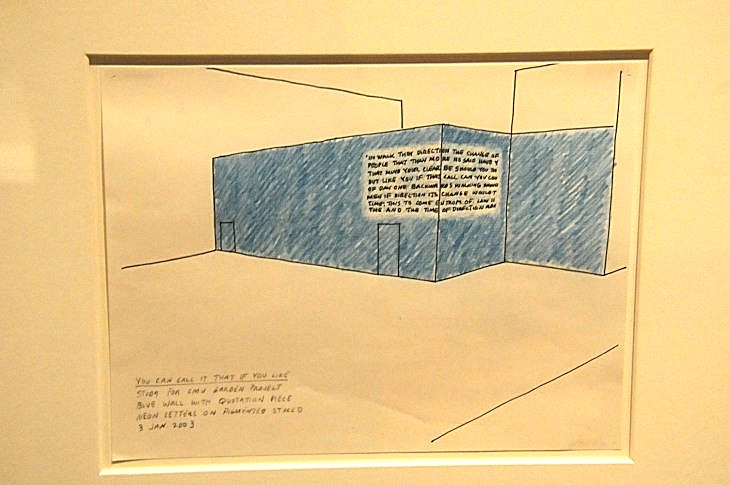 "IN WALK THEY DIRECTION THE CHANGE OF
PEOPLE THAT THAN MORE HE SAID HAVE Y
THAT MIND YOUR CLEAR BE SHOULD YOU TH
BUT LIKE YOU IF THAT CALL CAN YOU
OF DAY ONE BACKWARDS WALKING
MEN IF DIRECTION ITS CHANGE WOULD T
TIME, THIS TO COME OF LAW IS
THE AND THE TIME OF DIRECTION ARE
YOU CAN CALL IT THAT IF YOU LIKE
STUDY FOR GARDEN PROJECT
BLUE WALL WITH QUOTATION PIECE
NEON LETTERS ON PIGMENTED STUCCO
3 JAN. 2003